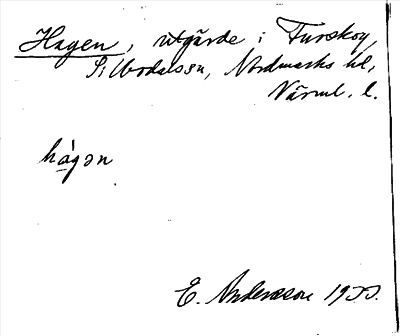 Hagen, utgärde i Furskog,
Silbodals sn, Nordmarks hd,
Värml. l.
hágən
E. Andersson 1933.